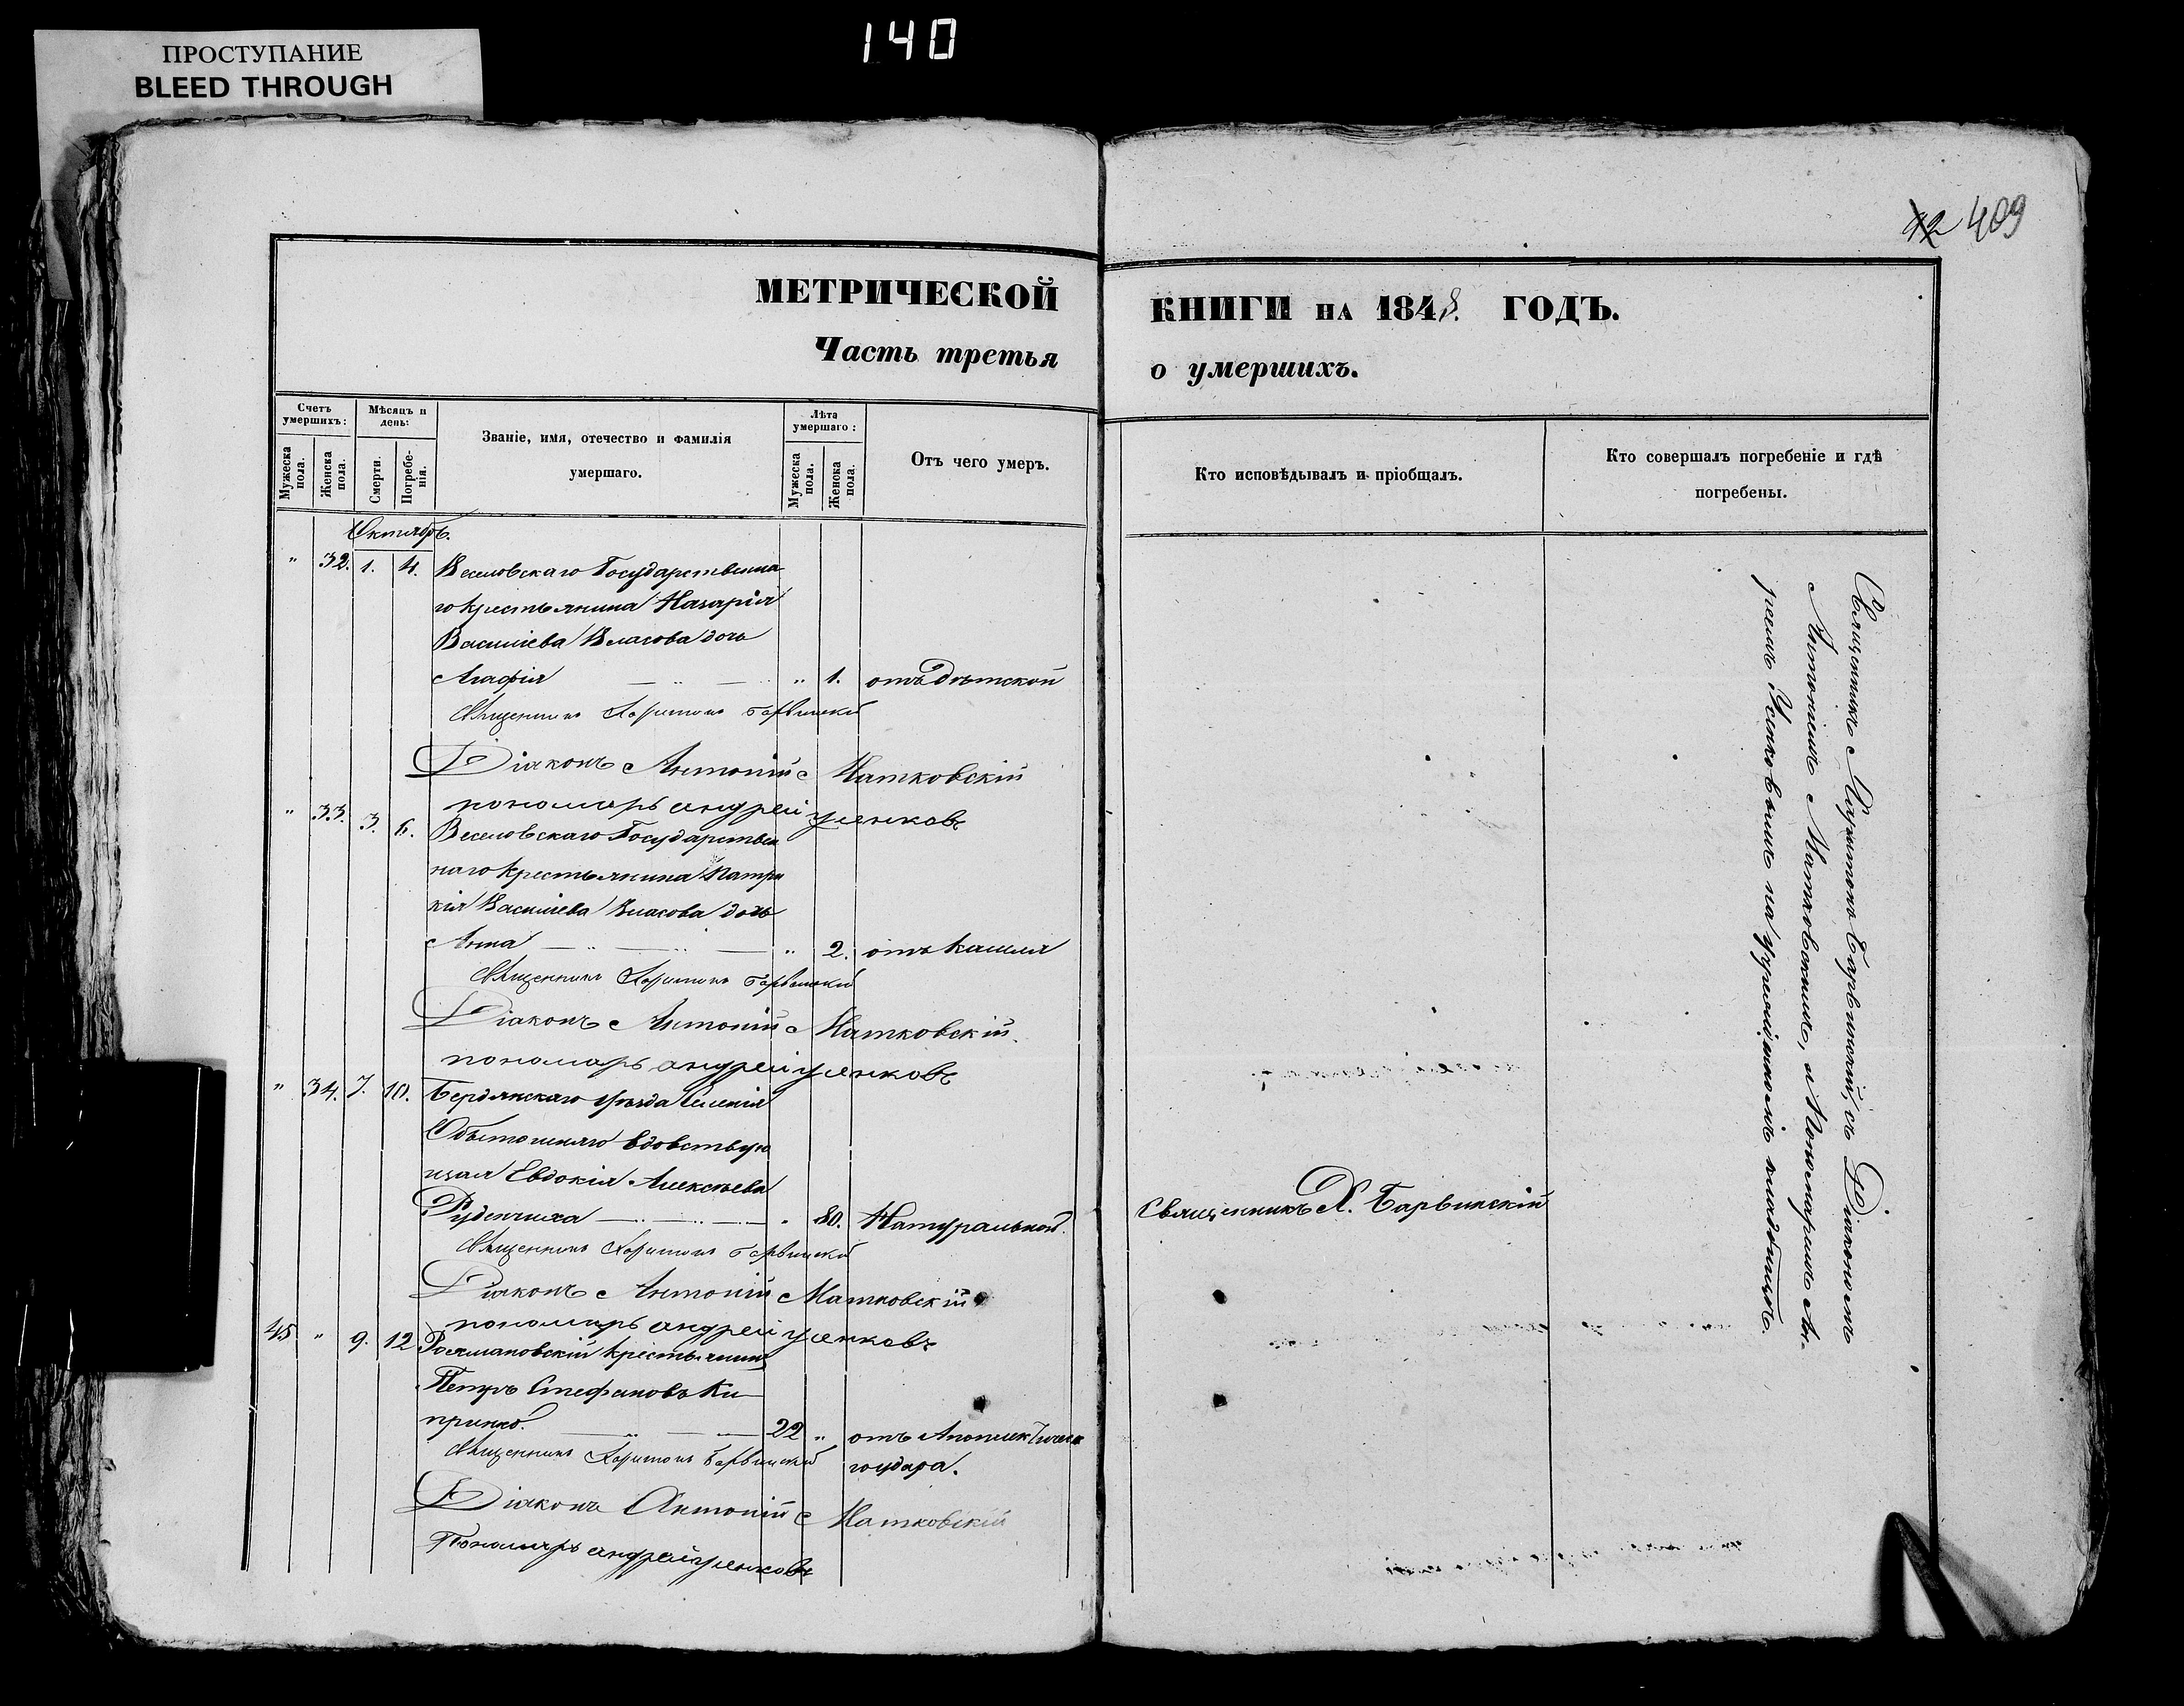 140
ПРОСТУПАНИЕ
BLEED THROUGH
12 409
МЕТРИЧЕСКОЙ КНИГИ НА 1848. ГОДЪ.
Часть третья о умершихъ.
Счетъ умершихъ:
Мужеска пола.
Женска пола.
Мѣсяцъ и день:
Смерти.
Погребенія.
Званіе, имя, отечество и фамилія
умершаго.
Лѣта умершаго:
Мужеска пола.
Женска пола.
Отъ чего умеръ.
Кто исповѣдывалъ и пріобщалъ.
Кто совершалъ погребеніе и гдѣ
погребены.
Октябрь.
" 32. 1. 4. Веселовскаго Государственна
го крестьянина Назарія
Василіева Власова дочь
Агафія " 1. отъ Дѣтской
Священникъ Харитонъ Барвинскій
Діаконъ Антоній Матковскій
пономарь андрей усенковъ
" 33. 3. 6. Веселовскаго Государствен
наго крестьянина Патри
кія Василіева Власова дочь
Анна " 2. отъ кашля
Священникъ Харитонъ Барвинскій
Діаконъ Антоній Матковскій.
пономарь андрей усенковъ
" 34. 7. 10. Бердянскаго уѣзда Селенія
Обыточнаго вдовствую
щая Евдокія Алексѣева
Руденчиха " 80. Натуральной. Священникъ Х. Барвинскій
Священникъ Харитонъ Барвинскій
Діаконъ Антоній Матковскій
пономарь андрей усенковъ
45 " 9. 12 крестьянинъ
Петръ Стефановъ Ки
принко. 22 " отъ Апоплектическ
Священникъ Харитонъ Барвинскій го удара.
Діаконъ Антоній Матковскій
Пономарь андрей усенковъ
Священникъ Харитонъ Барвинскій, съ Діакономъ
Антоніемъ Матковскимъ, и Пономаремъ Анд-
реемъ Усенковымъ на кладбищѣ.